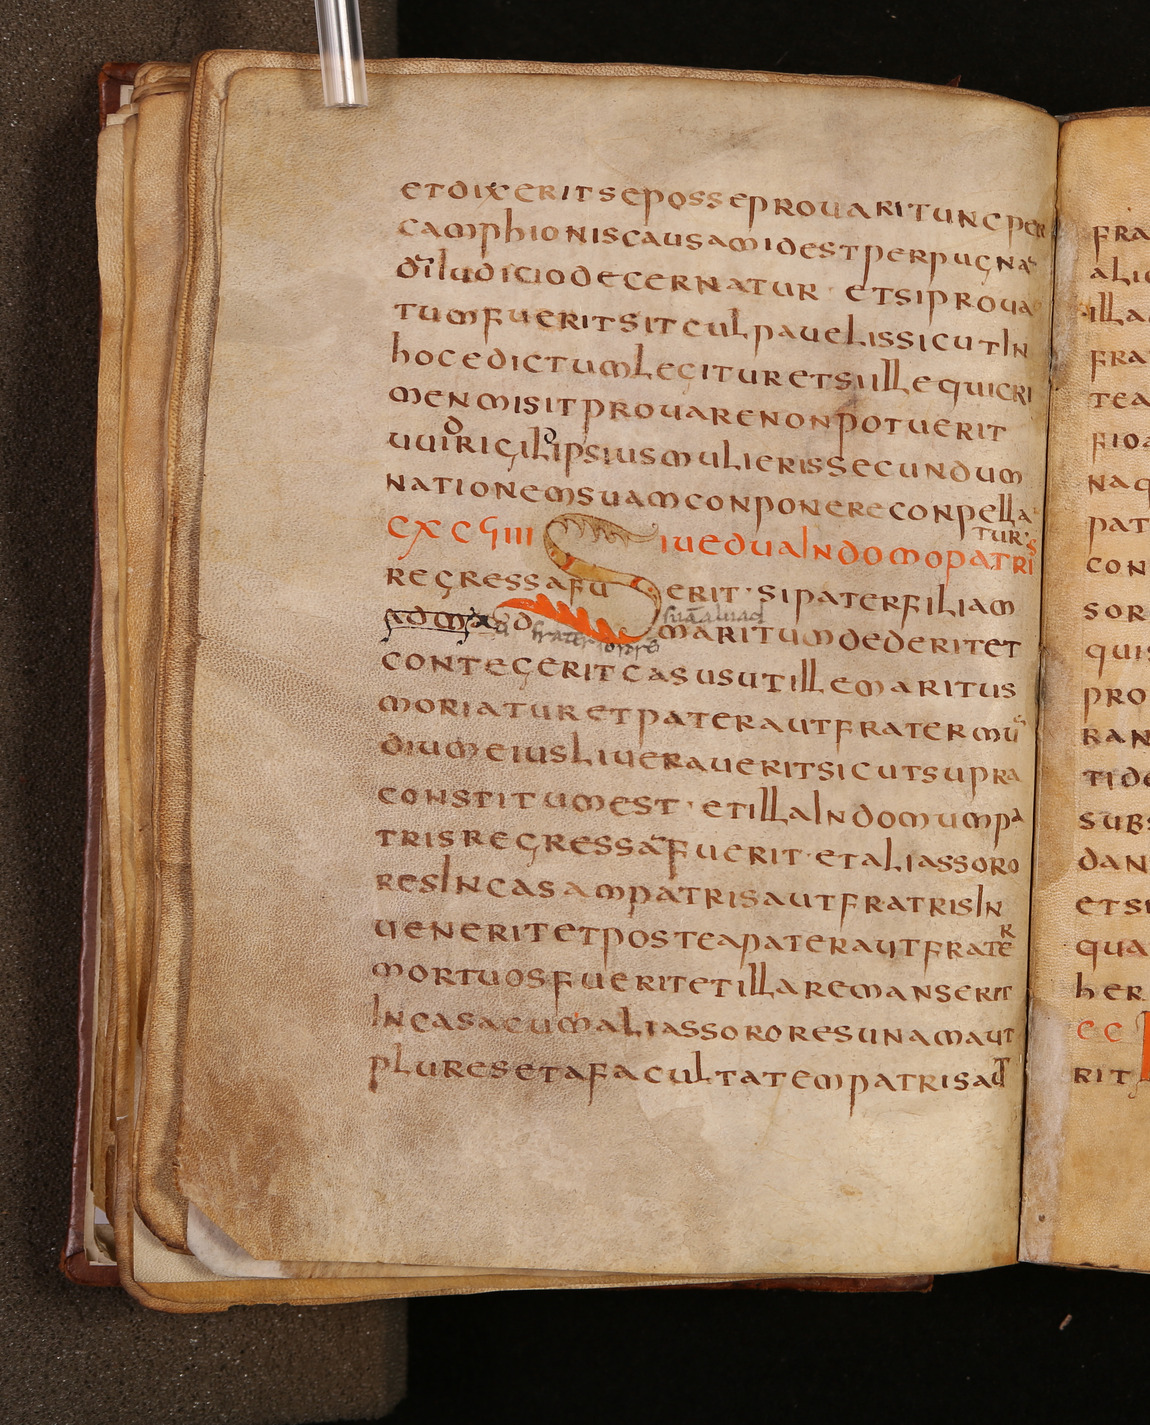 etdixeritseposseprouarituncper
camphioniscausamidestperpugnā
d̄iludiciodecernatur· etsiproua
tumfueritsitculpauelissicutIn
hocedictumlegituretsiillequicri
menmisitprouarenonpotuerit
uuirigild ipsiusmulierissecundum
nationemsuamconponereconpella
tur·
cxcɥiiii Siuedua Indomopatris
regressafuerit·sipaterfiliam
suā aliuad
ad maritumdederitet
u frater sorore
contegeritcasusutillemaritus
moriaturetpaterautfratermū
diumeiusliueraueritsicutsupra
constitumest· etillaIndomumpa
trisregressāfuerit·etaliassoro
resIncasampatrisautfratrisIn
ueneritetposteapaterautfrater
mortuosfueritetillaremanserit
Incasacumaliassororesunamaut
pluresetafacultatempatrisaut
fra
alic
illa
fra
tea
fioa
naq
pat
con
sor
quis
pro
ran
tide
subs
dan
etsi
qua
her
cc
rit